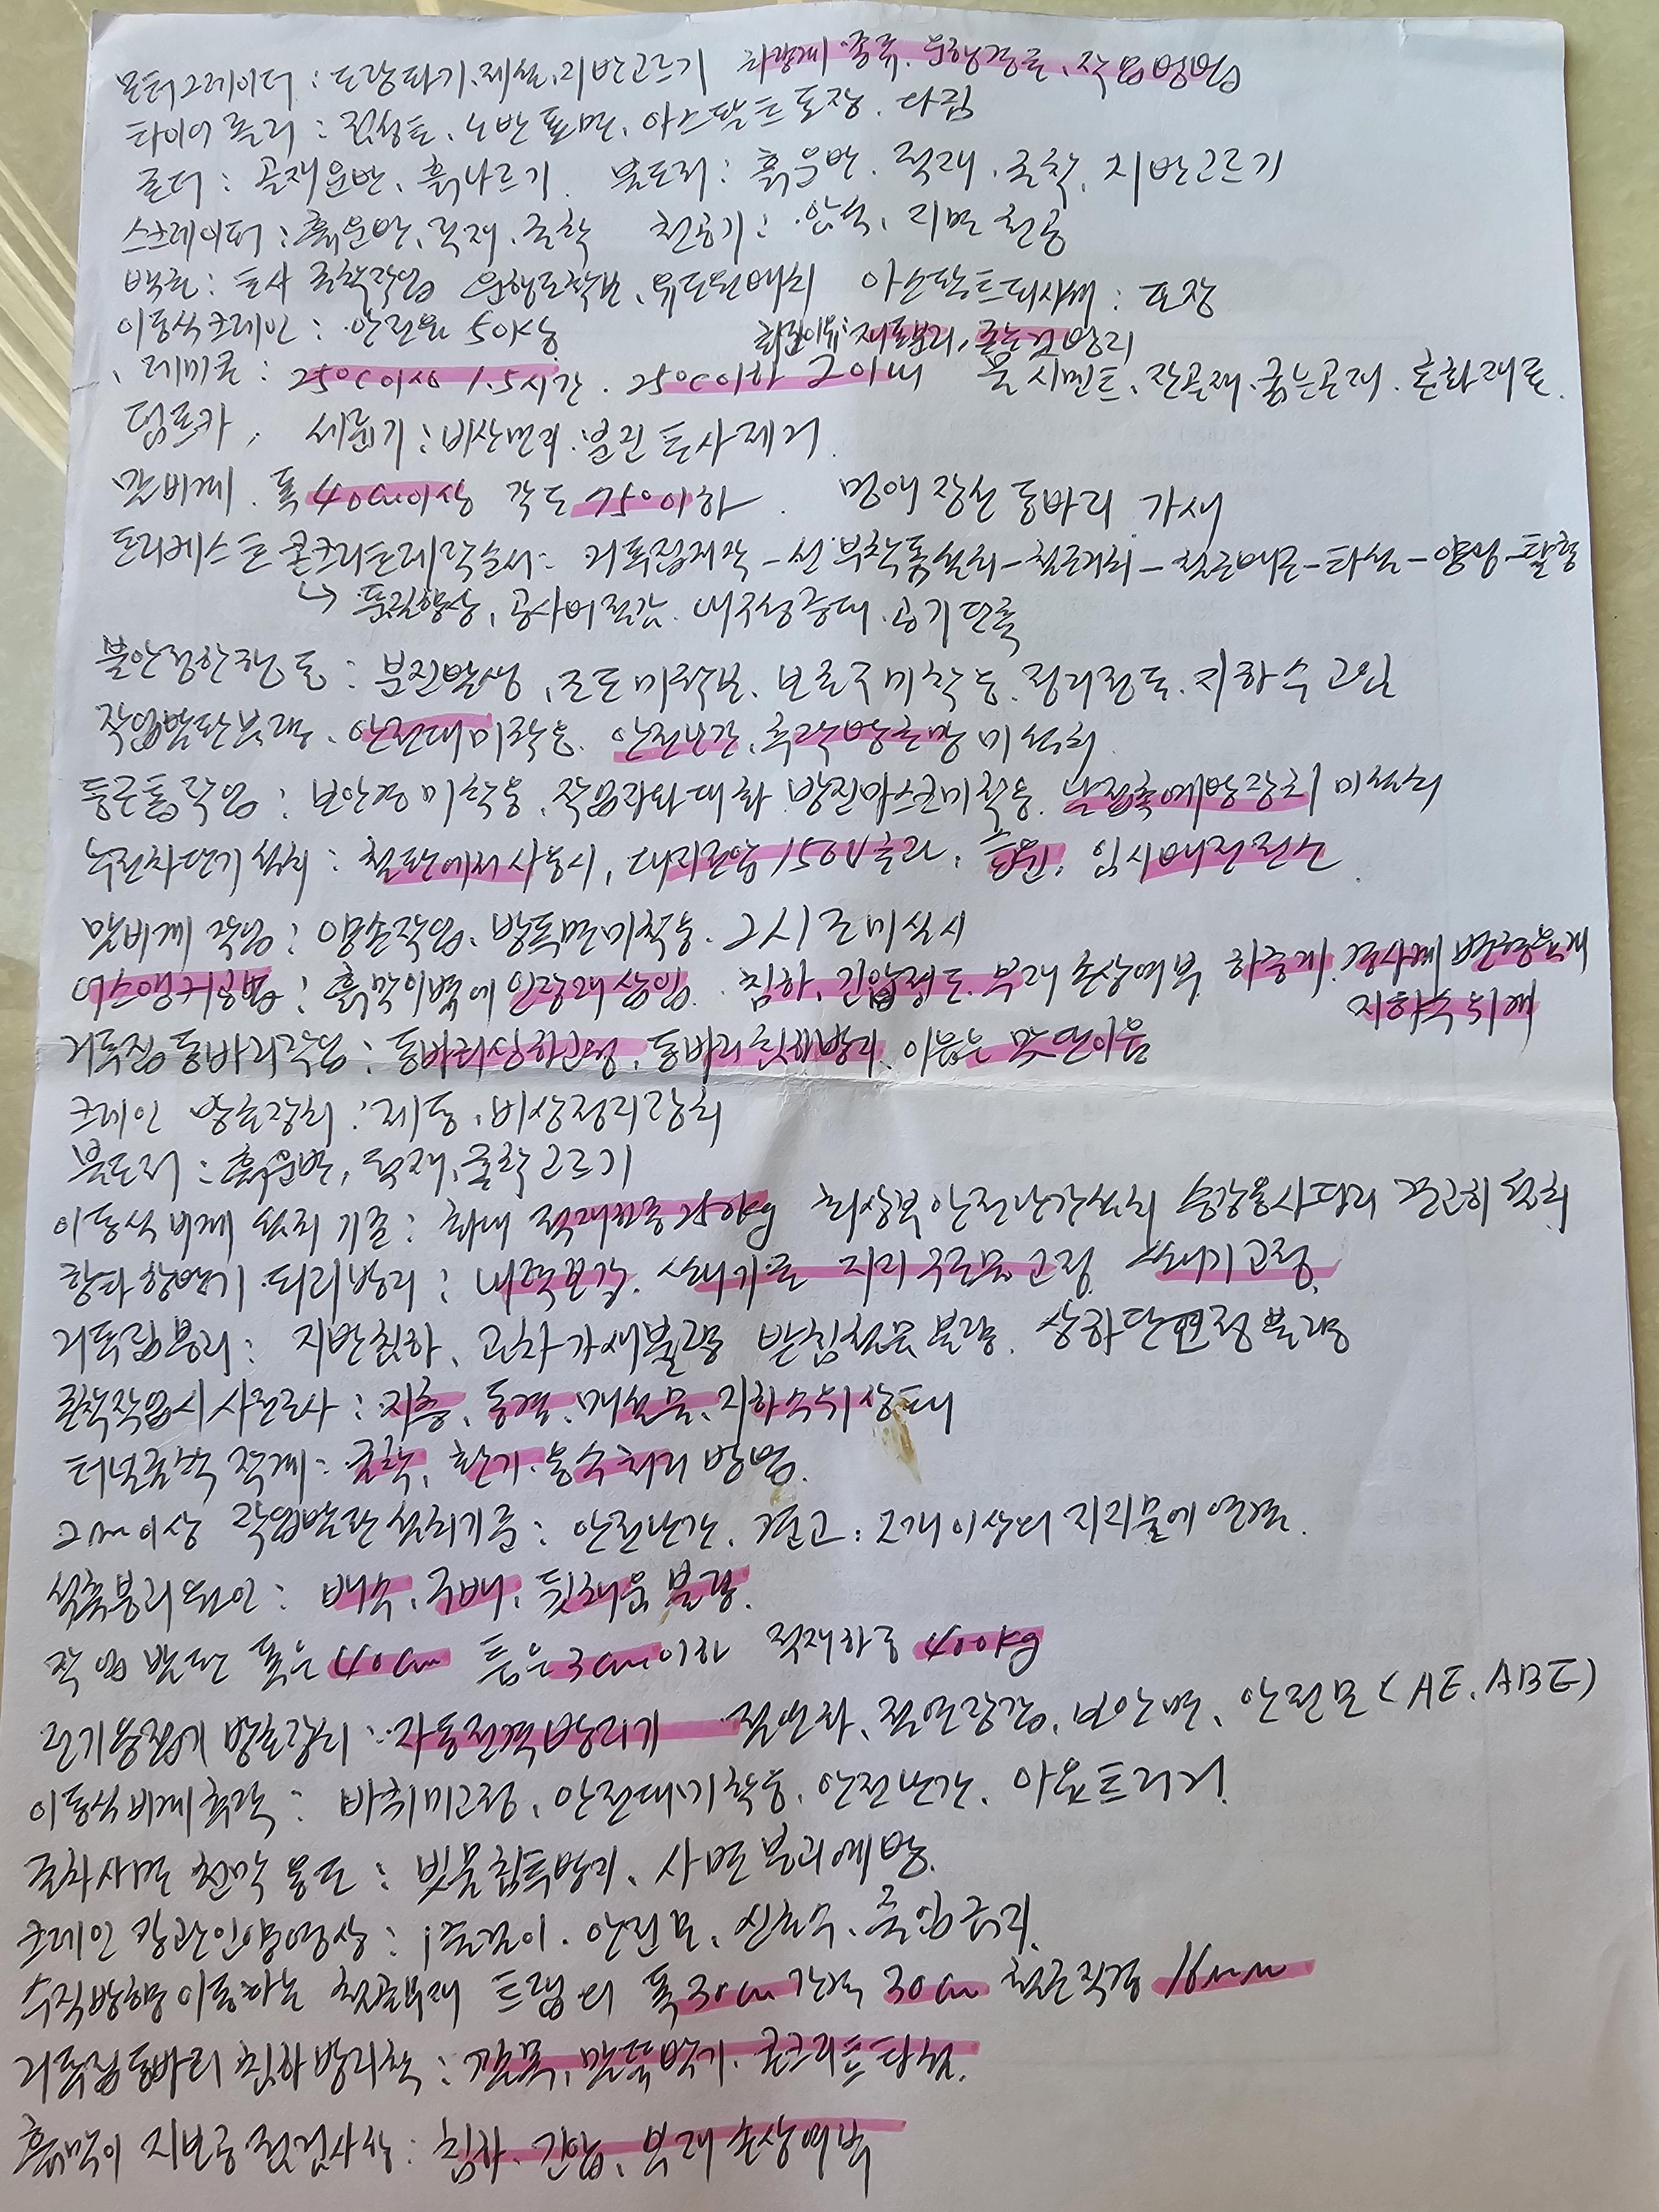 모터그레이더 : 도랑파기. 제설. 지반고르기 차량계 종류. 운행경로. 작업방법
타이어 롤러 : 점성토. 노반표면. 아스팔트 포장. 다짐
로더 : 골재운반. 흙나르기. 불도저 : 흙운반. 적재. 굴착. 지반고르기
스크레이퍼 : 흙운반. 적재. 굴착 천공기 : 암석. 지면 천공
백호 : 토사 굴착작업 운행로확보. 유도원배치 아스팔트피니셔 : 포장
이동식크레인 : 안전율 5이상
회전이유 : 재료분리, 굳는것방지
레미콘 : 25°C이상 1.5시간. 25°C이하 2이내 물 시멘트. 잔골재. 굵은골재. 혼화재료.
덤프카. 세륜기 : 비산먼지. 분진 토사제거.
말비계. 폭 40cm이상 각도 75°이하. 멍에 장선 동바리 가새
프리케스트 콘크리트제작순서 : 거푸집제작 - 선부착품설치 - 철근거치 - 철근배근 - 타설 - 양생 - 탈형
↳ 품질향상. 공사비절감. 내구성증대. 공기단축
불안정한행동 : 분진발생. 조도미확보. 보호구미착용. 정리정돈. 지하수고임
작업발판불량. 안전대미착용. 안전난간. 추락방호망 미설치.
둥근톱작업 : 보안경미착용. 작업자와대화 방진마스크미착용. 날접촉예방장치 미설치
누전차단기설치 : 철판에서사용시, 대지전압 150V초과. 습윤. 임시배전전선.
말비계 작업 : 양손작업. 방독면미착용. 2人1조미실시
어스앵커공법 : 흙막이벽에 인장재삽입. 침하. 긴압정도. 부재 손상여부 하중계. 경사계 변형률계
지하수위계
거푸집동바리작업 : 동바리상하고정. 동바리침하방지. 이음은 맞댄이음
크레인 방호장치 : 제동. 비상정지장치
불도저 : 흙운반. 적재. 굴착 고르기
이동식비계 설치 기준 : 최대 적재하중 250kg 최상부안전난간설치 승강용사다리 견고히 설치
항타항발기 도괴방지 : 내력보강. 버팀대기준 지지구조물고정. 버팀대고정.
거푸집붕괴 : 지반침하. 교차가새불량 받침철물불량. 상하단고정불량
굴착작업시 사전조사 : 지층. 동결. 매설물. 지하수위상태
터널굴착 작계 : 굴착. 환기. 용수처리 방법.
2m이상 작업발판설치기준 : 안전난간. 견고. 2개이상의 지지물에 연결.
석축붕괴원인 : 배수. 구배. 뒷채움 불량.
작업발판 폭은 40cm 틈은 3cm이하 적재하중 400kg
전기용접기 방호장치 : 자동전격방지기 절연화. 절연장갑. 보안면. 안전모(AE. ABE)
이동식비계추락 : 바퀴미고정. 안전대미착용. 안전난간. 아웃트리거.
굴착사면 천막용도 : 빗물침투방지. 사면붕괴예방.
크레인 강관인양영상 : 1줄걸이. 안전모. 신호수. 출입금지.
수직방향이동하는 철골부재 트랩의 폭30cm 간격 30cm 철근직경 16mm
거푸집동바리침하방지책 : 깔목. 말뚝박기. 콘크리트타설.
흙막이 지보공점검사항 : 침하. 긴압. 부재 손상여부